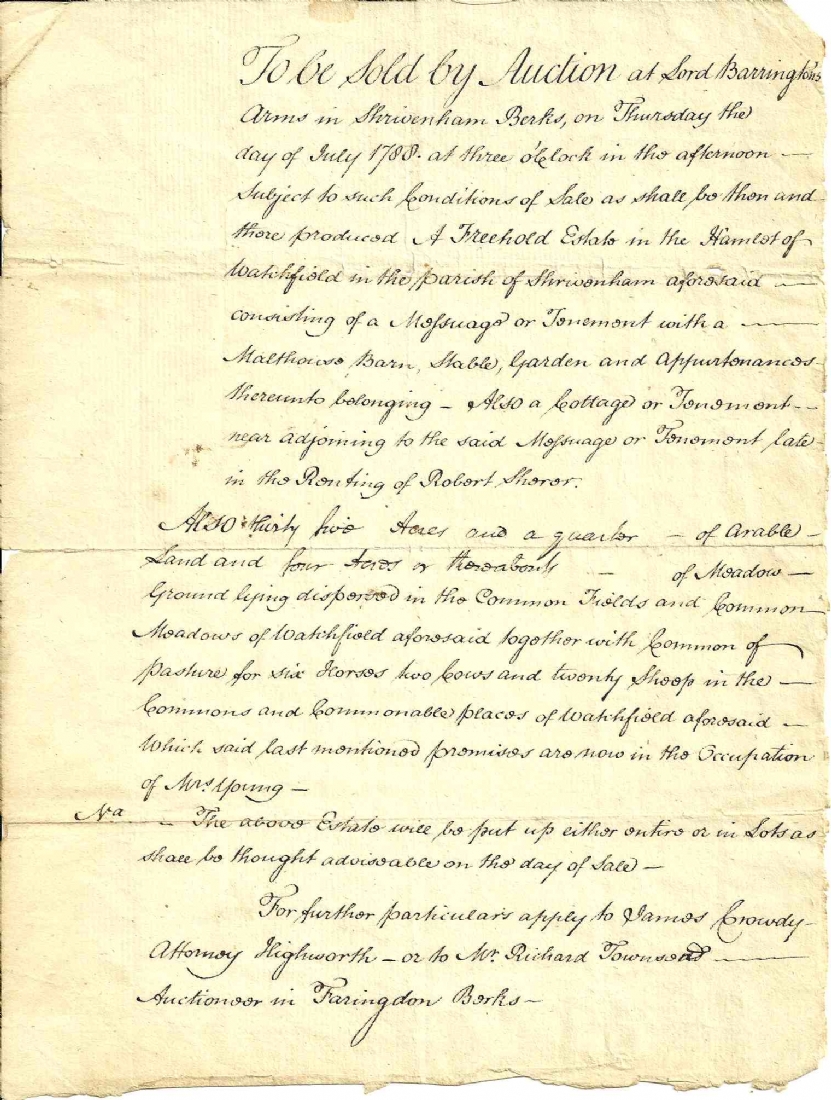 To be Sold by Auction at Lord Barringtons
Arms in Shrivenham Berks, on Thursday the
day of July 1788. at three o'Clock in the afternoon —
Subject to such Conditions of Sale as shall be then and
there produced A Freehold Estate in the Hamlet of
Watchfield in the parish of Shrivenham aforesaid —
consisting of a Messuage or Tenement with a —
Malthouse Barn, Stable, Garden and Appurtenances
thereunto belonging — Also a Cottage or Tenement —
near adjoining to the said Messuage or Tenement late
in the Renting of Robert Sherer.
Also thirty five Acres and a quarter — of Arable —
Land and four Acres or thereabouts — of Meadow —
Ground lying dispersed in the Common Fields and Common
Meadows of Watchfield aforesaid together with Common of
pasture for six Horses two Cows and twenty Sheep in the —
Commons and Commonable places of Watchfield aforesaid —
Which said last mentioned premises are now in the Occupation
of Mrs Young —
Na — The above Estate will be put up either entire or in Lots as
shall be thought adviseable on the day of Sale —
For further particulars apply to James Crowdy
Attorney Highworth — or to Mr. Richard Townsend —
Auctioneer in Faringdon Berks —